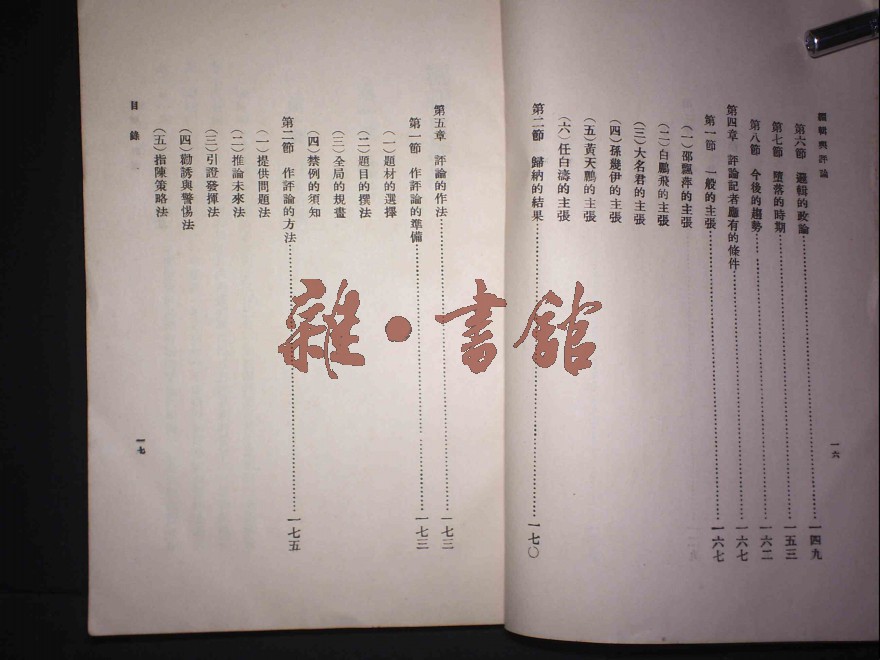 編輯與評論
第六節　邏輯的政論……一四九
第七節　墮落的時期……一五三
第八節　今後的趨勢……一六二
第四章　評論記者應有的條件……一六七
第一節　一般的主張……一六七
（一）邵飄萍的主張
（二）白鵬飛的主張
（三）大名君的主張
（四）孫幾伊的主張
（五）黃天鵬的主張
（六）任白濤的主張
第二節　歸納的結果……一七〇
一六
第五章　評論的作法……一七三
第一節　作評論的準備……一七三
（一）題材的選擇
（二）題目的撰法
（三）全局的規畫
（四）禁例的須知
第二節　作評論的方法……一七五
（一）提供問題法
（二）推論未來法
（三）引證發揮法
（四）勸誘與警惕法
（五）指陳策略法
目錄
一七
雜·書館